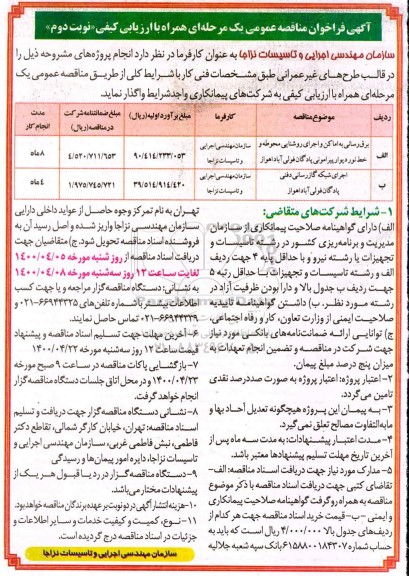 آگهی فراخوان مناقصه عمومی یک مرحله‌ای همراه با ارزیابی کیفی «نوبت دوم»
سازمان مهندسی اجرایی و تاسیسات نزاجا به عنوان کارفرما در نظر دارد انجام پروژه‌های مشروحه ذیل را
در قالب طرح‌های غیرعمرانی طبق مشخصات فنی کار با شرایط کلی از طریق مناقصه عمومی یک
مرحله‌ای همراه با ارزیابی کیفی به شرکت‌های پیمانکاری واجد شرایط واگذار نماید.
ردیف موضوع مناقصه کارفرما مبلغ برآورد اولیه (ریال) مبلغ ضمانتنامه شرکت در مناقصه (ریال) مدت انجام کار
الف برق رسانی به اماکن و اجرای روشنایی محوطه و خط نور دیوار پیرامونی پادگان فولی آباد اهواز سازمان مهندسی اجرایی و تاسیسات نزاجا ۹۰/۴۱۴/۲۳۳/۰۵۳ ۴/۵۲۰/۷۱۱/۶۵۳ ۸ ماه
ب اجرای شبکه گازرسانی دفنی پادگان فولی آباد اهواز سازمان مهندسی اجرایی و تاسیسات نزاجا ۳۹/۵۱۴/۹۱۴/۴۲۰ ۱/۹۷۵/۷۴۵/۷۲۱ ۴ ماه
۱- شرایط شرکت‌های متقاضی:
الف) دارای گواهینامه صلاحیت پیمانکاری از سازمان
مدیریت و برنامه‌ریزی کشور در رشته تاسیسات و
تجهیزات یا رشته نیرو و با حداقل پایه ۴ جهت ردیف
الف و رشته تاسیسات و تجهیزات با حداقل رتبه ۵
جهت ردیف ب جدول بالا و دارا بودن ظرفیت آزاد در
رشته مورد نظر. ب) داشتن گواهینامه تاییدیه
صلاحیت ایمنی از وزارت تعاون، کار و رفاه اجتماعی.
ج) توانایی ارائه ضمانت‌نامه‌های بانکی مورد نیاز
جهت شرکت در مناقصه و تضمین انجام تعهدات به
میزان پنج درصد مبلغ پیمان.
۲- اعتبار پروژه: اعتبار پروژه به صورت صددرصد نقدی
تامین می‌گردد.
۳- به پیمان این پروژه هیچگونه تعدیل آحاد بها و
مابه‌التفاوت مصالح تعلق نمی‌گیرد.
۴- مدت اعتبار پیشنهادات: به مدت سه ماه پس از
آخرین تاریخ مهلت تسلیم پیشنهادها معتبر باشد.
۵- مدارک مورد نیاز جهت دریافت اسناد مناقصه: الف-
تقاضای کتبی جهت دریافت اسناد مناقصه با ذکر موضوع
مناقصه به همراه رو گرفت گواهینامه صلاحیت پیمانکاری
و ایمنی - ب- قیمت خرید اسناد مناقصه جهت هر کدام از
ردیف‌های جدول بالا ۴/۰۰۰/۰۰۰ ریال است که باید به
حساب شماره ۶۱۵۸۸۰۰۱۸۴۳۰۷ بانک سپه شعبه جلالیه
تهران به نام تمرکز وجوه حاصل از عواید داخلی دارایی
سازمان مهندسی نزاجا واریز شده و اصل رسید آن به
فروشنده اسناد مناقصه تحویل شود. ج) متقاضیان جهت
دریافت اسناد مناقصه از روز شنبه مورخه ۱۴۰۰/۴/۰۵
لغایت ساعت ۱۳ روز سه‌شنبه مورخه ۱۴۰۰/۰۴/۰۸
به نشانی: دستگاه مناقصه گزار مراجعه و یا جهت کسب
اطلاعات بیشتر با شماره تلفن‌های ۶۶۹۴۴۳۲۵-۰۲۱ و
۶۶۹۴۴۳۴۹-۰۲۱ تماس حاصل نمایند.
۶- آخرین مهلت جهت تسلیم اسناد مناقصه و پیشنهاد
قیمت ساعت ۱۲ روز سه‌شنبه مورخه ۱۴۰۰/۰۴/۲۲
۷- بازگشایی پاکات مناقصه در ساعت ۹ صبح مورخه
۱۴۰۰/۰۴/۲۳ و در محل اتاق جلسات دستگاه مناقصه گزار
انجام خواهد گرفت.
۸- نشانی دستگاه مناقصه‌گزار جهت دریافت و تسلیم
اسناد مناقصه: تهران، خیابان کارگر شمالی، تقاطع دکتر
فاطمی، نبش فاطمی غربی، سازمان مهندسی اجرایی و
تاسیسات نزاجا، دایره امور پیمان‌ها و رسیدگی
۹- دستگاه مناقصه‌گزار در رد یا قبول هر یک از
پیشنهادات مختار می‌باشد.
۱۰- هزینه انتشار آگهی در دو نوبت بر عهده برندگان مناقصه خواهد بود.
۱۱- نوع، کمیت و کیفیت خدمات و سایر اطلاعات و
جزئیات در اسناد مناقصه درج گردیده است.
سازمان مهندسی اجرایی و تاسیسات نزاجا